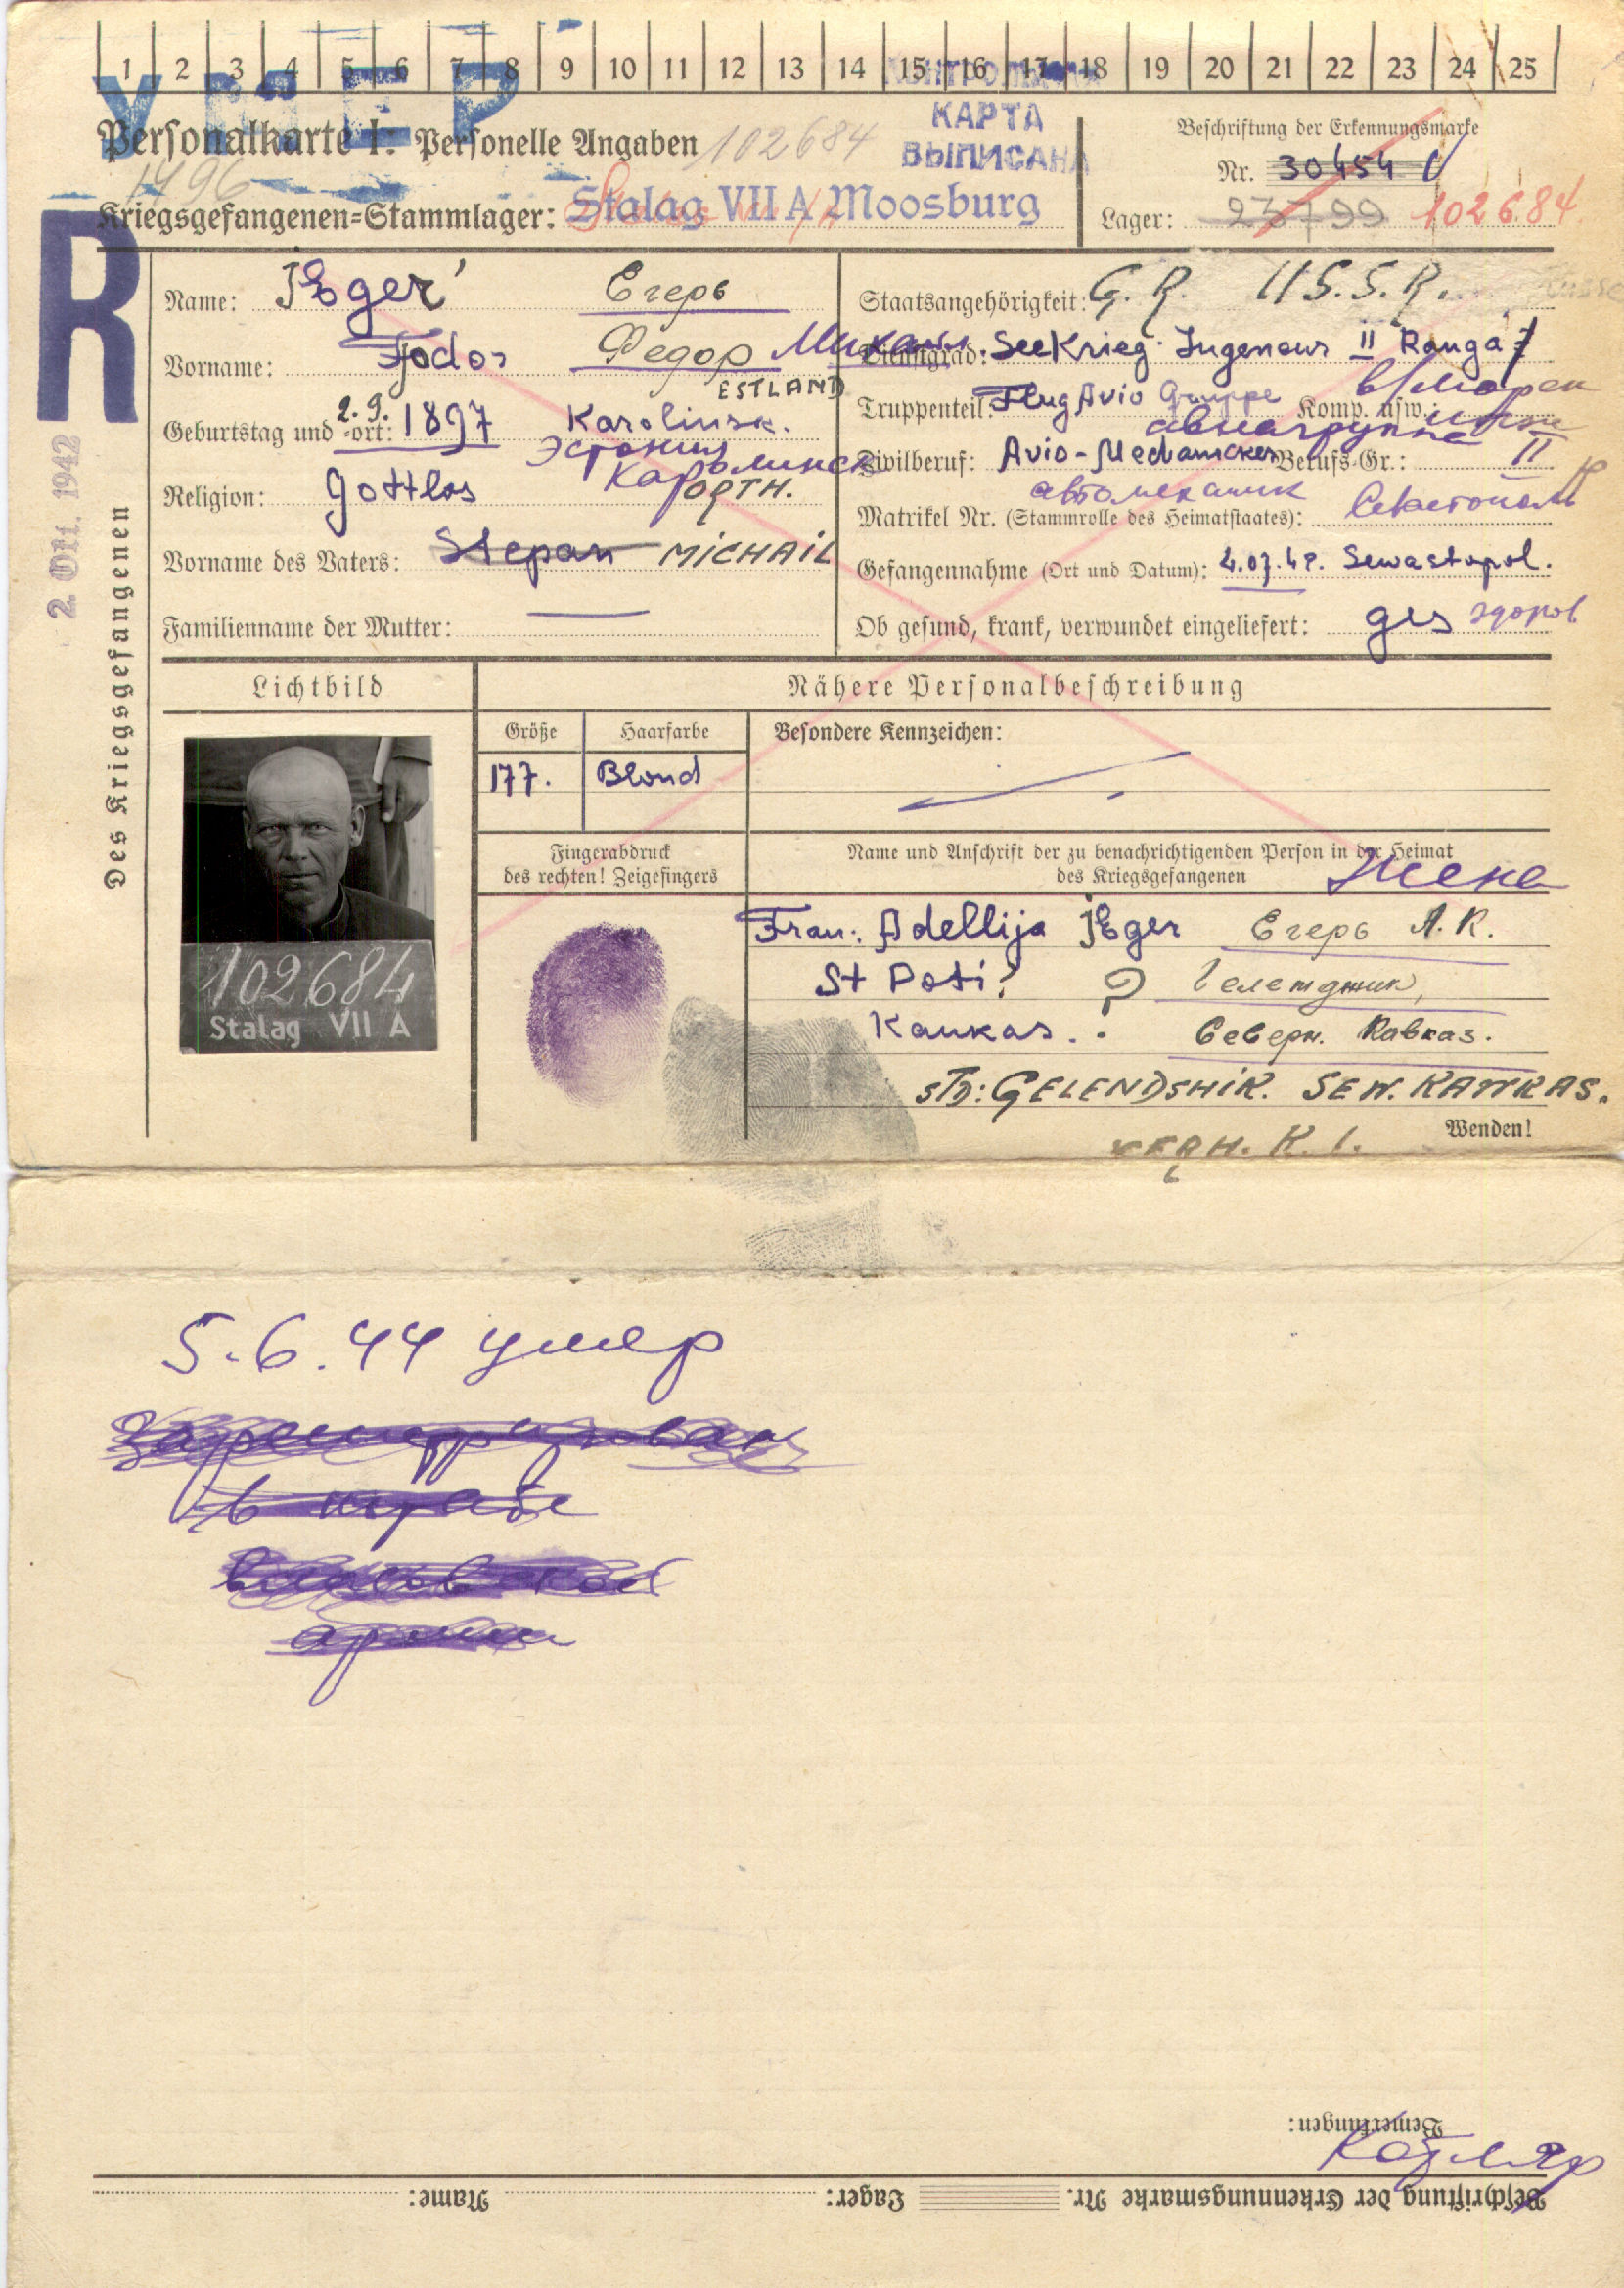 1 2 3 4 5 6 7 8 9 10 11 12 13 14 15 16 17 18 19 20 21 22 23 24 25
УМЕР
КАРТА
ВЫПИСАНА
Personalkarte I: Personelle Angaben 102684
1496
Beschriftung der Erkennungsmarke
Nr. 30454 V
Kriegsgefangenen=Stammlager: Stalag VII A Moosburg
Lager: 23799 102684
R
2. Okt. 1942
Des Kriegsgefangenen
Name: JEger Егерь
Vorname: Fjodor Федор Михаил.
ESTLAND
Geburtstag und =ort: 2.9. 1897 Karolinsk.
Эстония
Каролинск
Religion: Gottlos ORTH.
Vorname des Vaters: Stepan MICHAIL
Familienname der Mutter: —
Staatsangehörigkeit: G. R. U.S.S.R.
Dienstgrad: SeeKrieg Ingeneur II Ranga
Truppenteil: Flug Avio Gruppe Komp. usw.:
авиагруппа
Zivilberuf: Avio-Mechanicker Berufs-Gr.: II
автомеханик
Matrikel Nr. (Stammrolle des Heimatstaates): Севастополь
Gefangennahme (Ort und Datum): 4.07.42. Sewastopol.
Ob gesund, krank, verwundet eingeliefert: ges здоров
Lichtbild
Nähere Personalbeschreibung
Größe Haarfarbe Besondere Kennzeichen:
177. Blond
102684
Stalag VII A
Fingerabdruck
des rechten! Zeigefingers
Name und Anschrift der zu benachrichtigenden Person in der Heimat
des Kriegsgefangenen Жена
Frau: Adellija JEger Егерь А.К.
St Poti? ? Геленджик,
Kaukas. Северн. Кавказ.
STD: GELENDSHIK. SEW. KAWKAS.
Wenden!
5.6.44 умер
в штабе
власовской
армии
Bemerkungen:
Beschriftung der Erkennungsmarke Nr. Lager: Name: